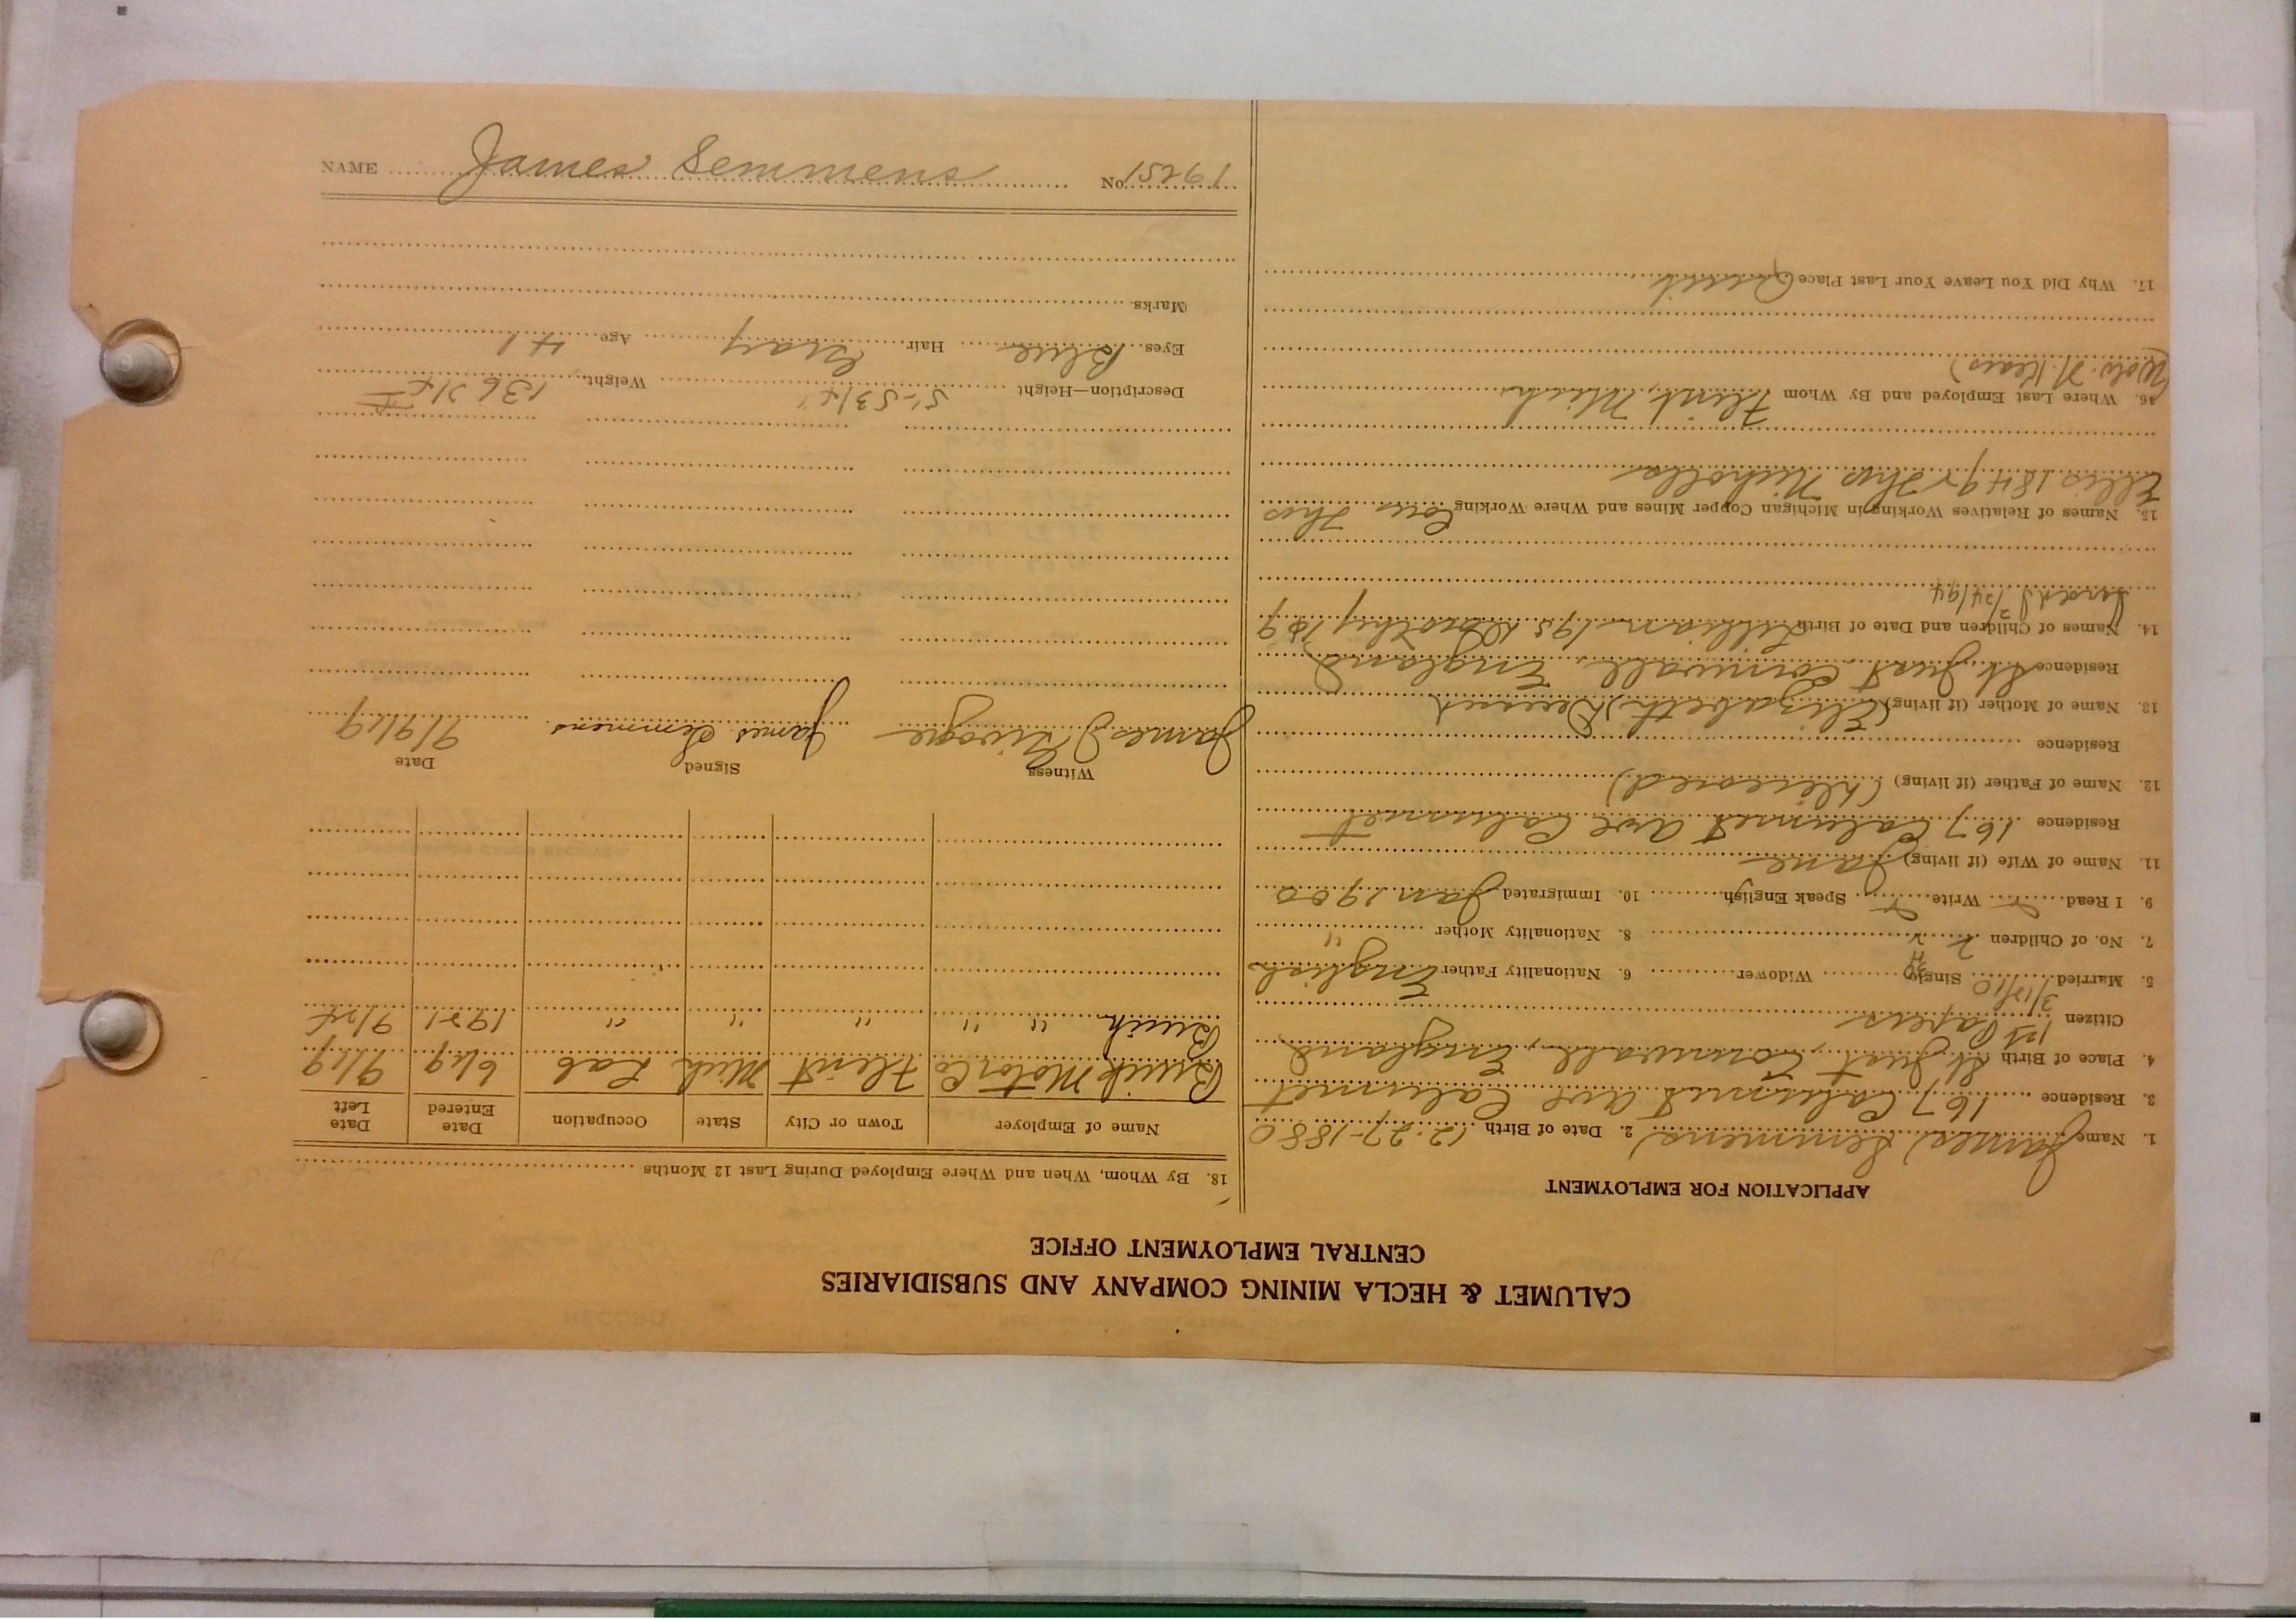 CALUMET & HECLA MINING COMPANY AND SUBSIDIARIES
CENTRAL EMPLOYMENT OFFICE
APPLICATION FOR EMPLOYMENT
1. Name James Semmens 2. Date of Birth 12-27-1880
3. Residence 167 Calumet Ave Calumet
4. Place of Birth St. Just, Cornwall, England
Citizen 1st Papers
5. Married 3/15/10 Single Widower 6. Nationality Father English
7. No. of Children 2 8. Nationality Mother "
9. I Read Write Speak English 10. Immigrated Jan 1900
11. Name of Wife (if living) Jane
Residence 167 Calumet Ave Calumet
12. Name of Father (if living) (Deceased)
Residence
13. Name of Mother (if living) (Elizabeth)
Residence St. Just Cornwall, England
14. Names of Children and Date of Birth Lillian Dorothy
15. Names of Relatives Working in Michigan Copper Mines and Where Working Cous Thos
Ellis 1849 & Thos Nicholls
16. Where Last Employed and By Whom Flint, Mich.
17. Why Did You Leave Your Last Place Quit
18. By Whom, When and Where Employed During Last 12 Months
Name of Employer Town or City State Occupation Date Entered Date Left
Buick Motor Co Flint Mich Lab 6/19 9/19
Buick " " " " " 1921 9/24
Witness Signed Date
James J. James Semmens 9/9/19
Description—Height 5'-5 3/4" Weight 136
Eyes Blue Hair Gray Age 41
Marks
NAME James Semmens No. 15291